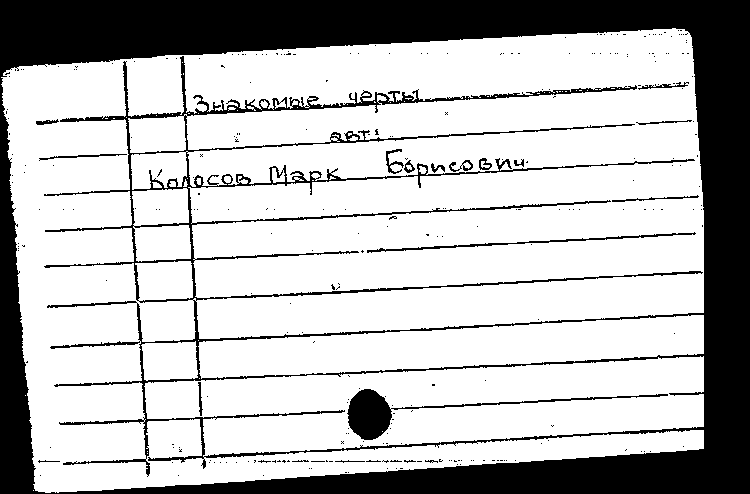 Знакомые черты
авт:
Колосов Марк Борисович